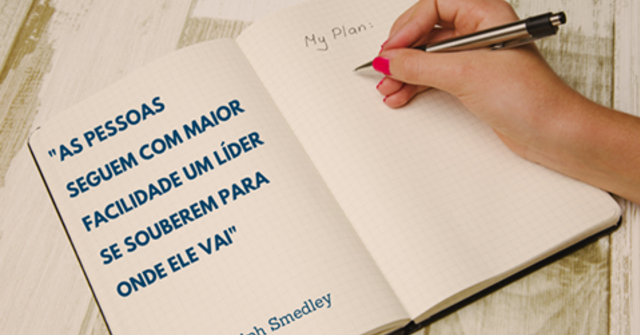 "AS PESSOAS
SEGUEM COM MAIOR
FACILIDADE UM LÍDER
SE SOUBEREM PARA
ONDE ELE VAI"
Smedley
My Plan: